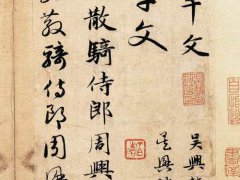 千文
吳興
字文
吳興
散騎侍郎周興
散騎侍郎周